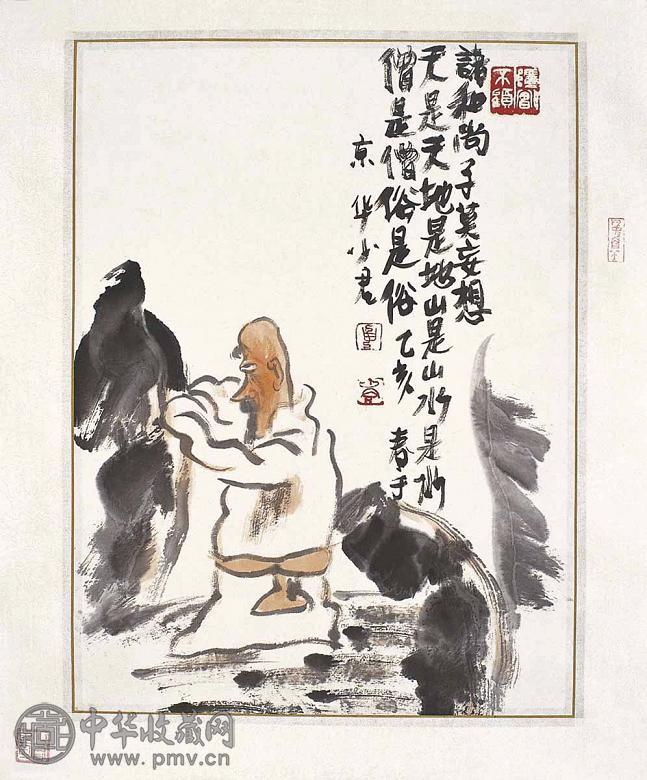 諸和尚子莫妄想
天是天地是地山是山水是水
僧是僧俗是俗 乙亥 春于
京华小君
中华收藏网
www.pmv.cn